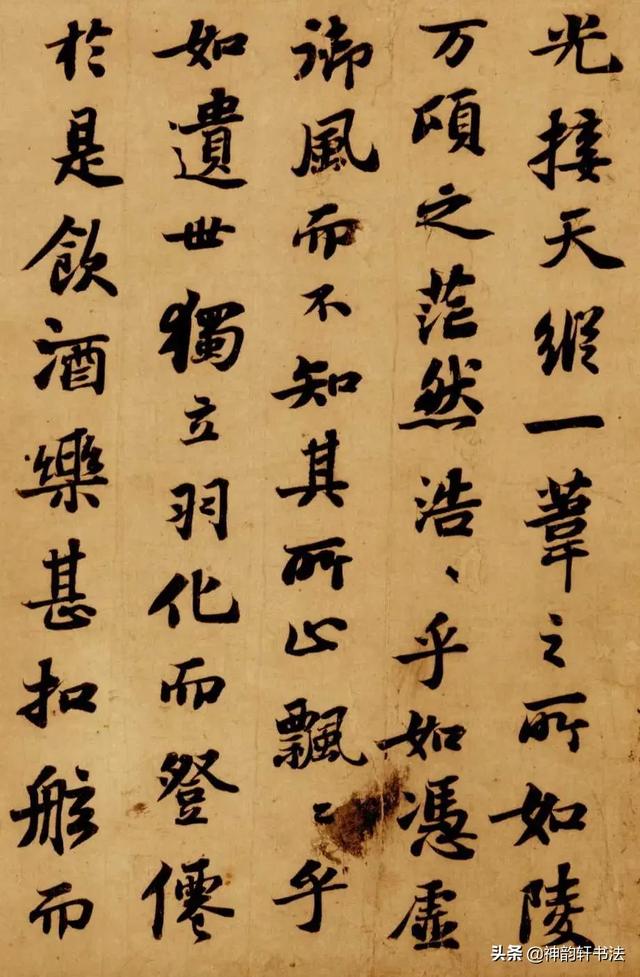 光接天縱一葦之所如陵
万頃之茫然浩〻乎如馮虛
御風而不知其所止飄〻乎
如遺世獨立羽化而登僊
於是飲酒樂甚扣舷而
头条 @神韵轩书法